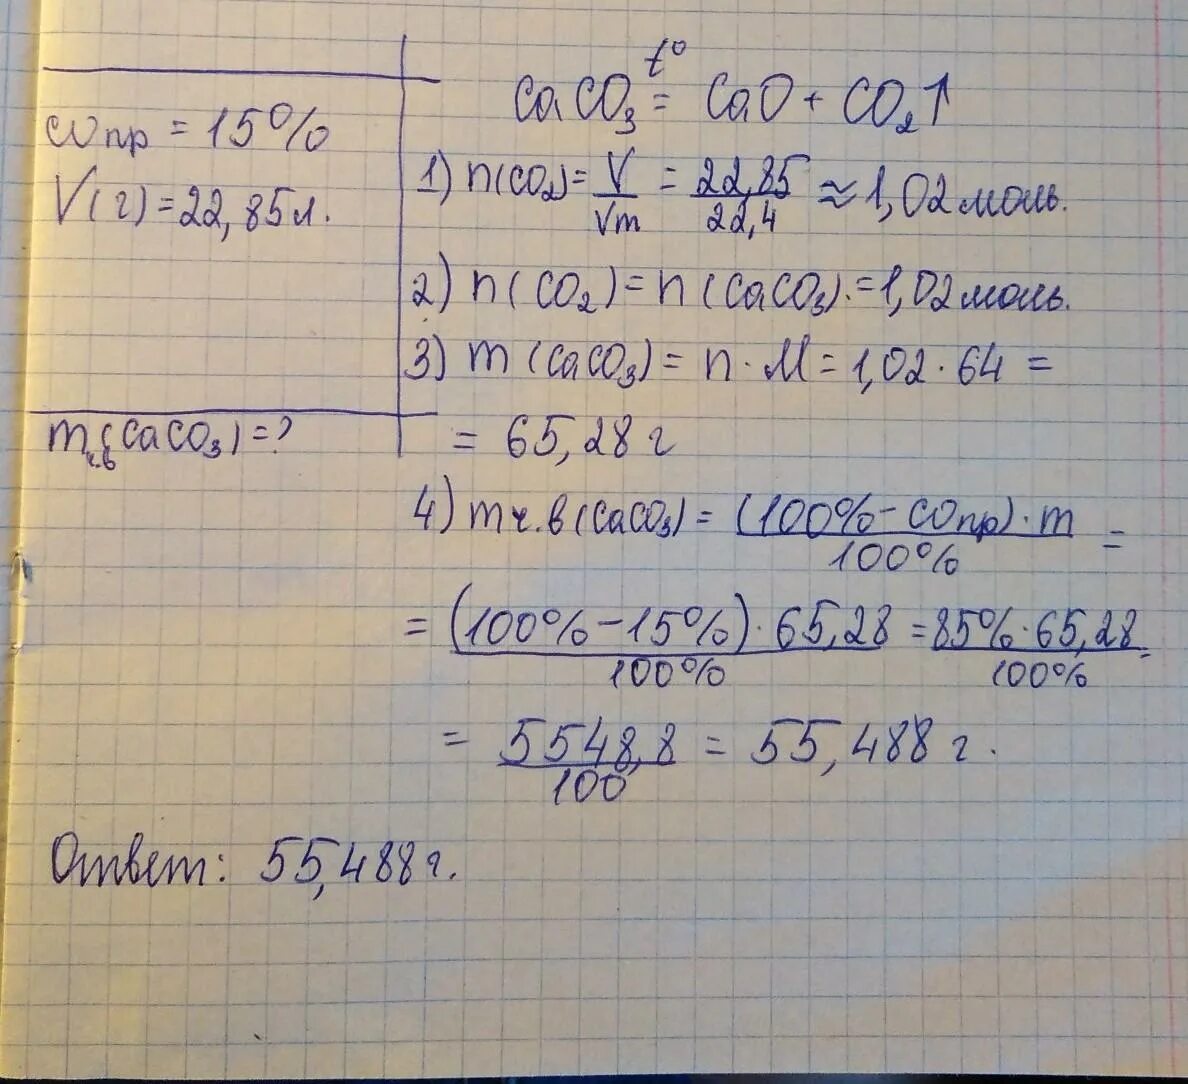 ωпр = 15%
V(г) = 22,85 л.
mч.в(CaCO₃) = ?
t°
CaCO₃ = CaO + CO₂↑
1) n(CO₂) = V/Vm = 22,85/22,4 ≈ 1,02 моль.
2) n(CO₂) = n(CaCO₃). = 1,02 моль.
3) m(CaCO₃) = n · M = 1,02 · 64 =
= 65,28 г
4) mч.в(CaCO₃) = (100% - ωпр) · m / 100% =
= (100% - 15%) · 65,28 / 100% = 85% · 65,28 / 100% =
= 5548,8 / 100 = 55,488 г.
Ответ: 55,488 г.